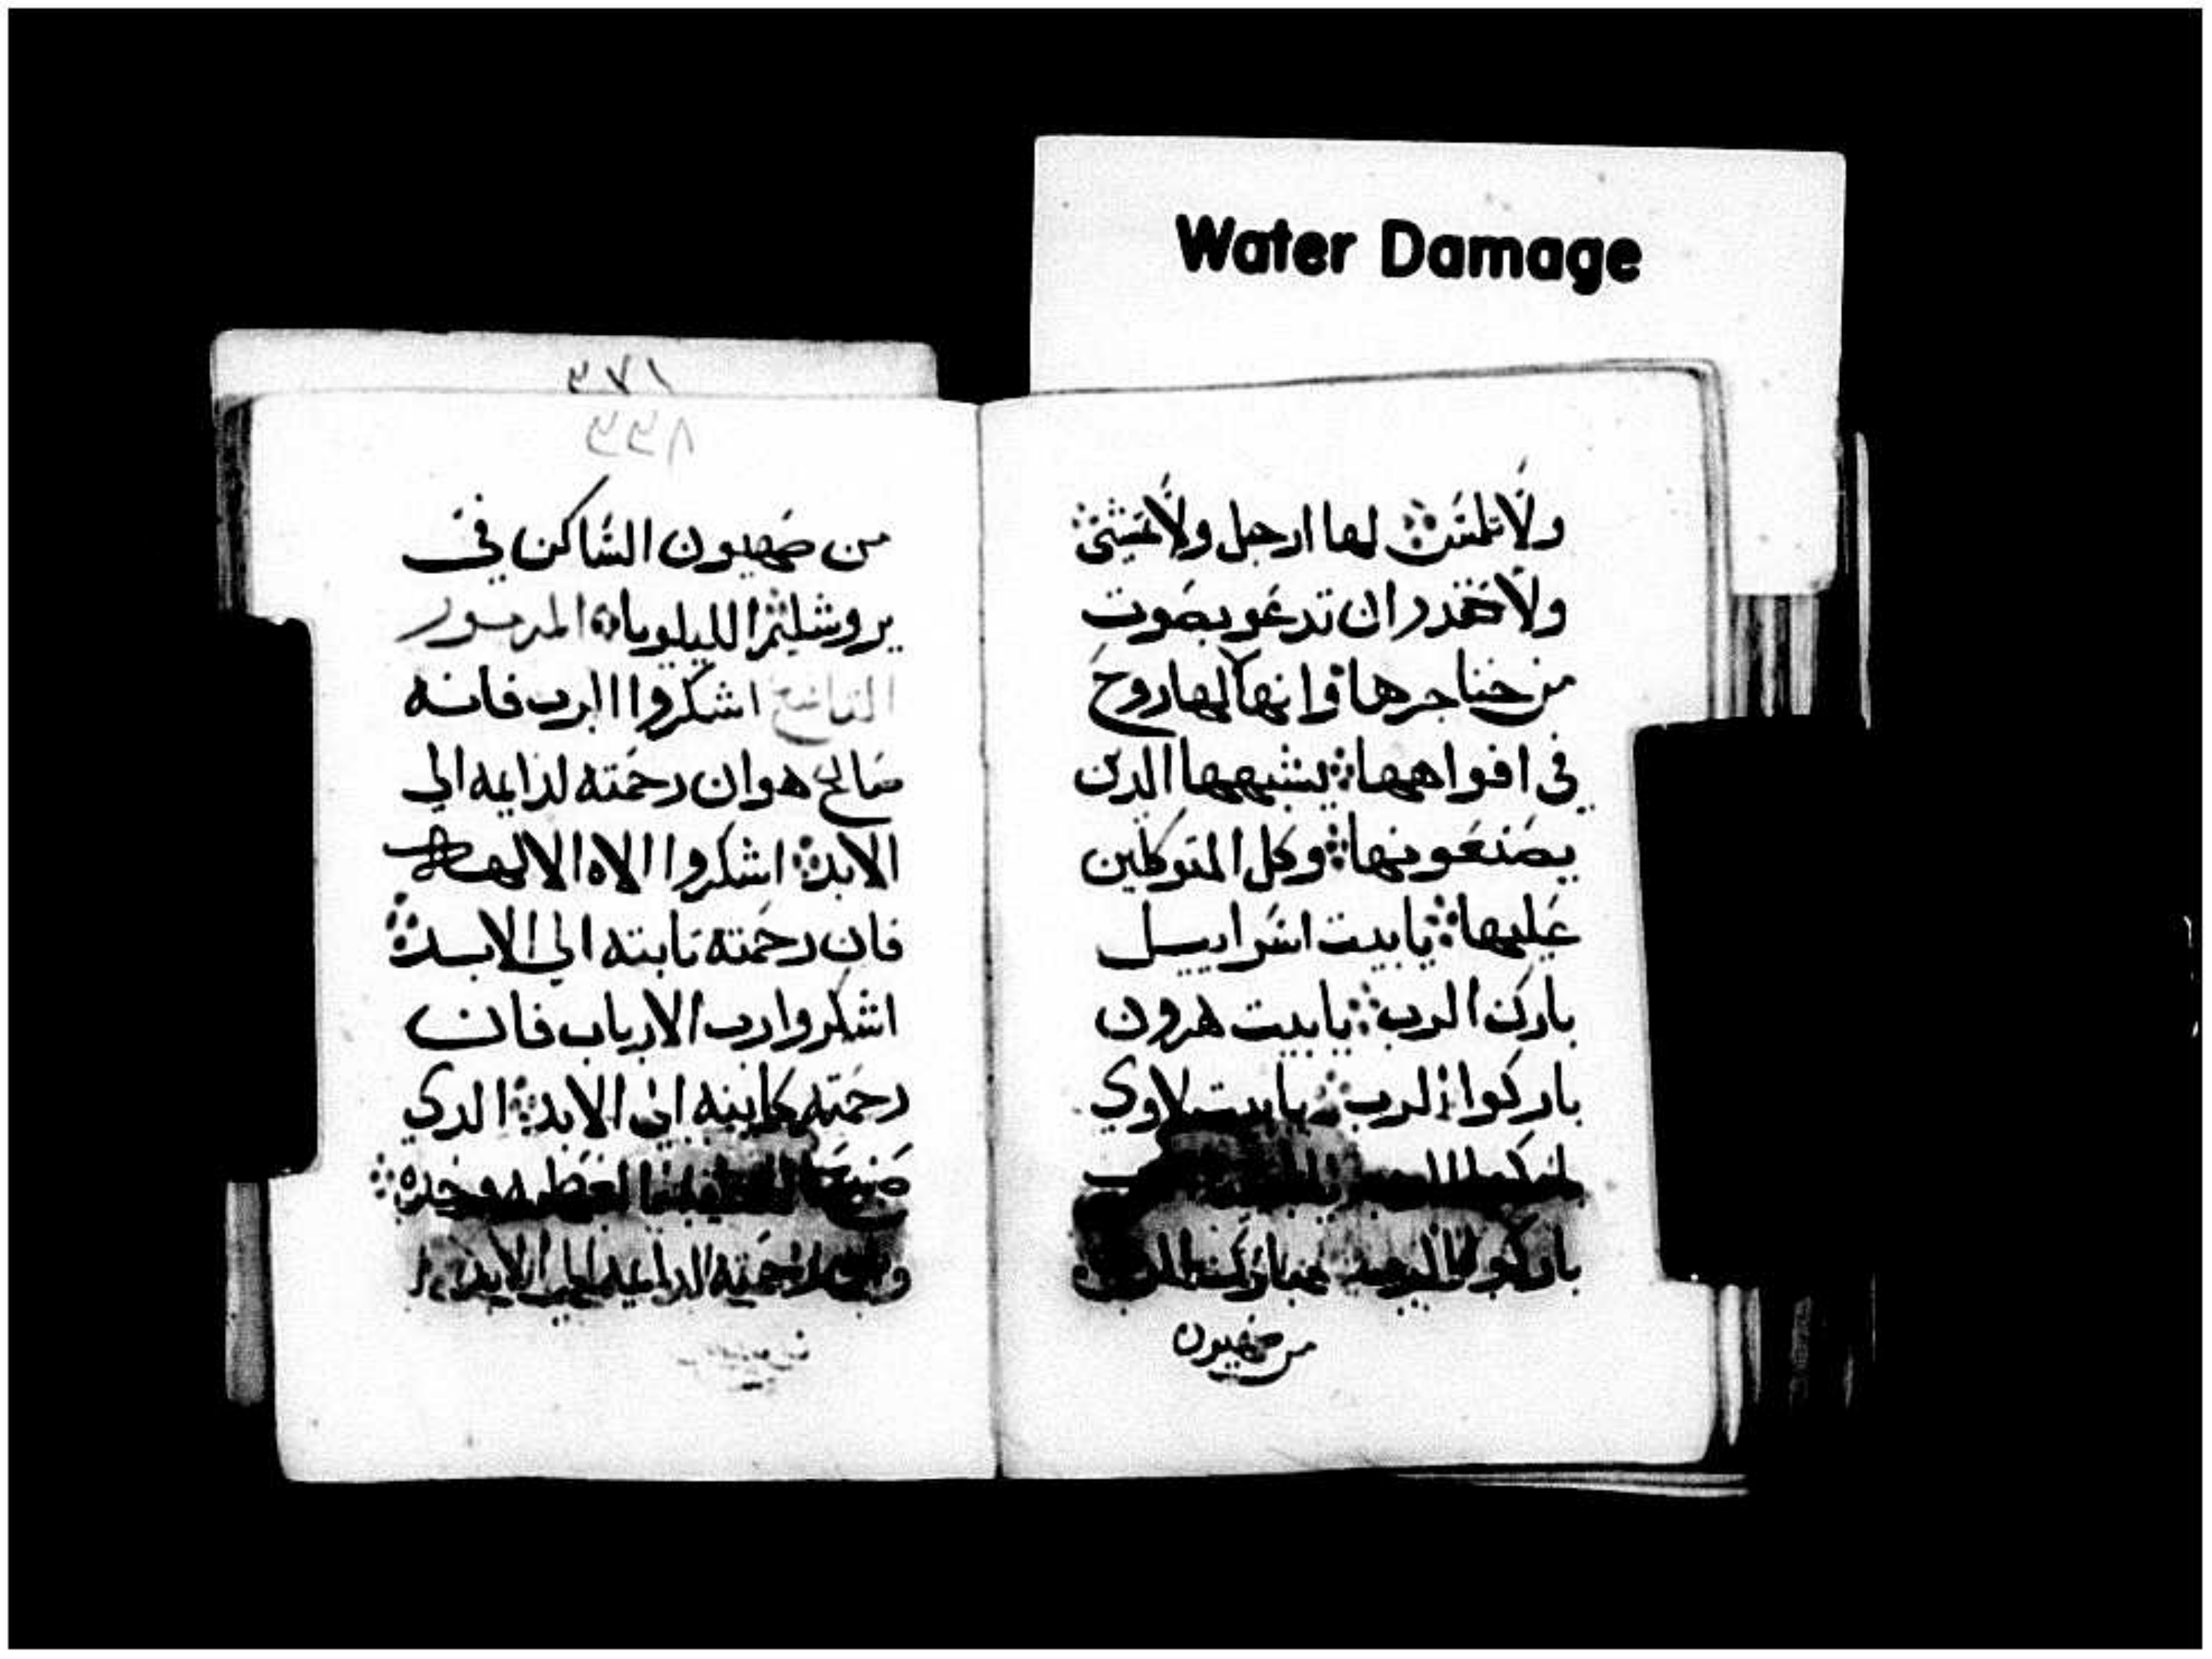 Water Damage
ولا تلمس لها ارجل ولا تمشي
ولا تقدر ان تدعو بصوت
من حناجرها ولا انها لها روح
في افواهها يشبهها الدين
يصنعونها وكل المتوكلين
عليها يا بيت اسراييل
بارك الرب يا بيت هرون
باركوا الرب يا بيت لاوي
باركوا
من صهيون
٣٧١
٣٣٨
من صهيون الساكن في
يروشليم الليلويا المزمور
اشكروا الرب فانه
صالح هو وان رحمته لدايمه الي
الابد اشكروا الاه الالهه
فان رحمته تابته الي الابد
اشكروا رب الارباب فان
رحمته كاينه الي الابد الدي
العظيمه وحده
رحمته الدايمه الي الابد